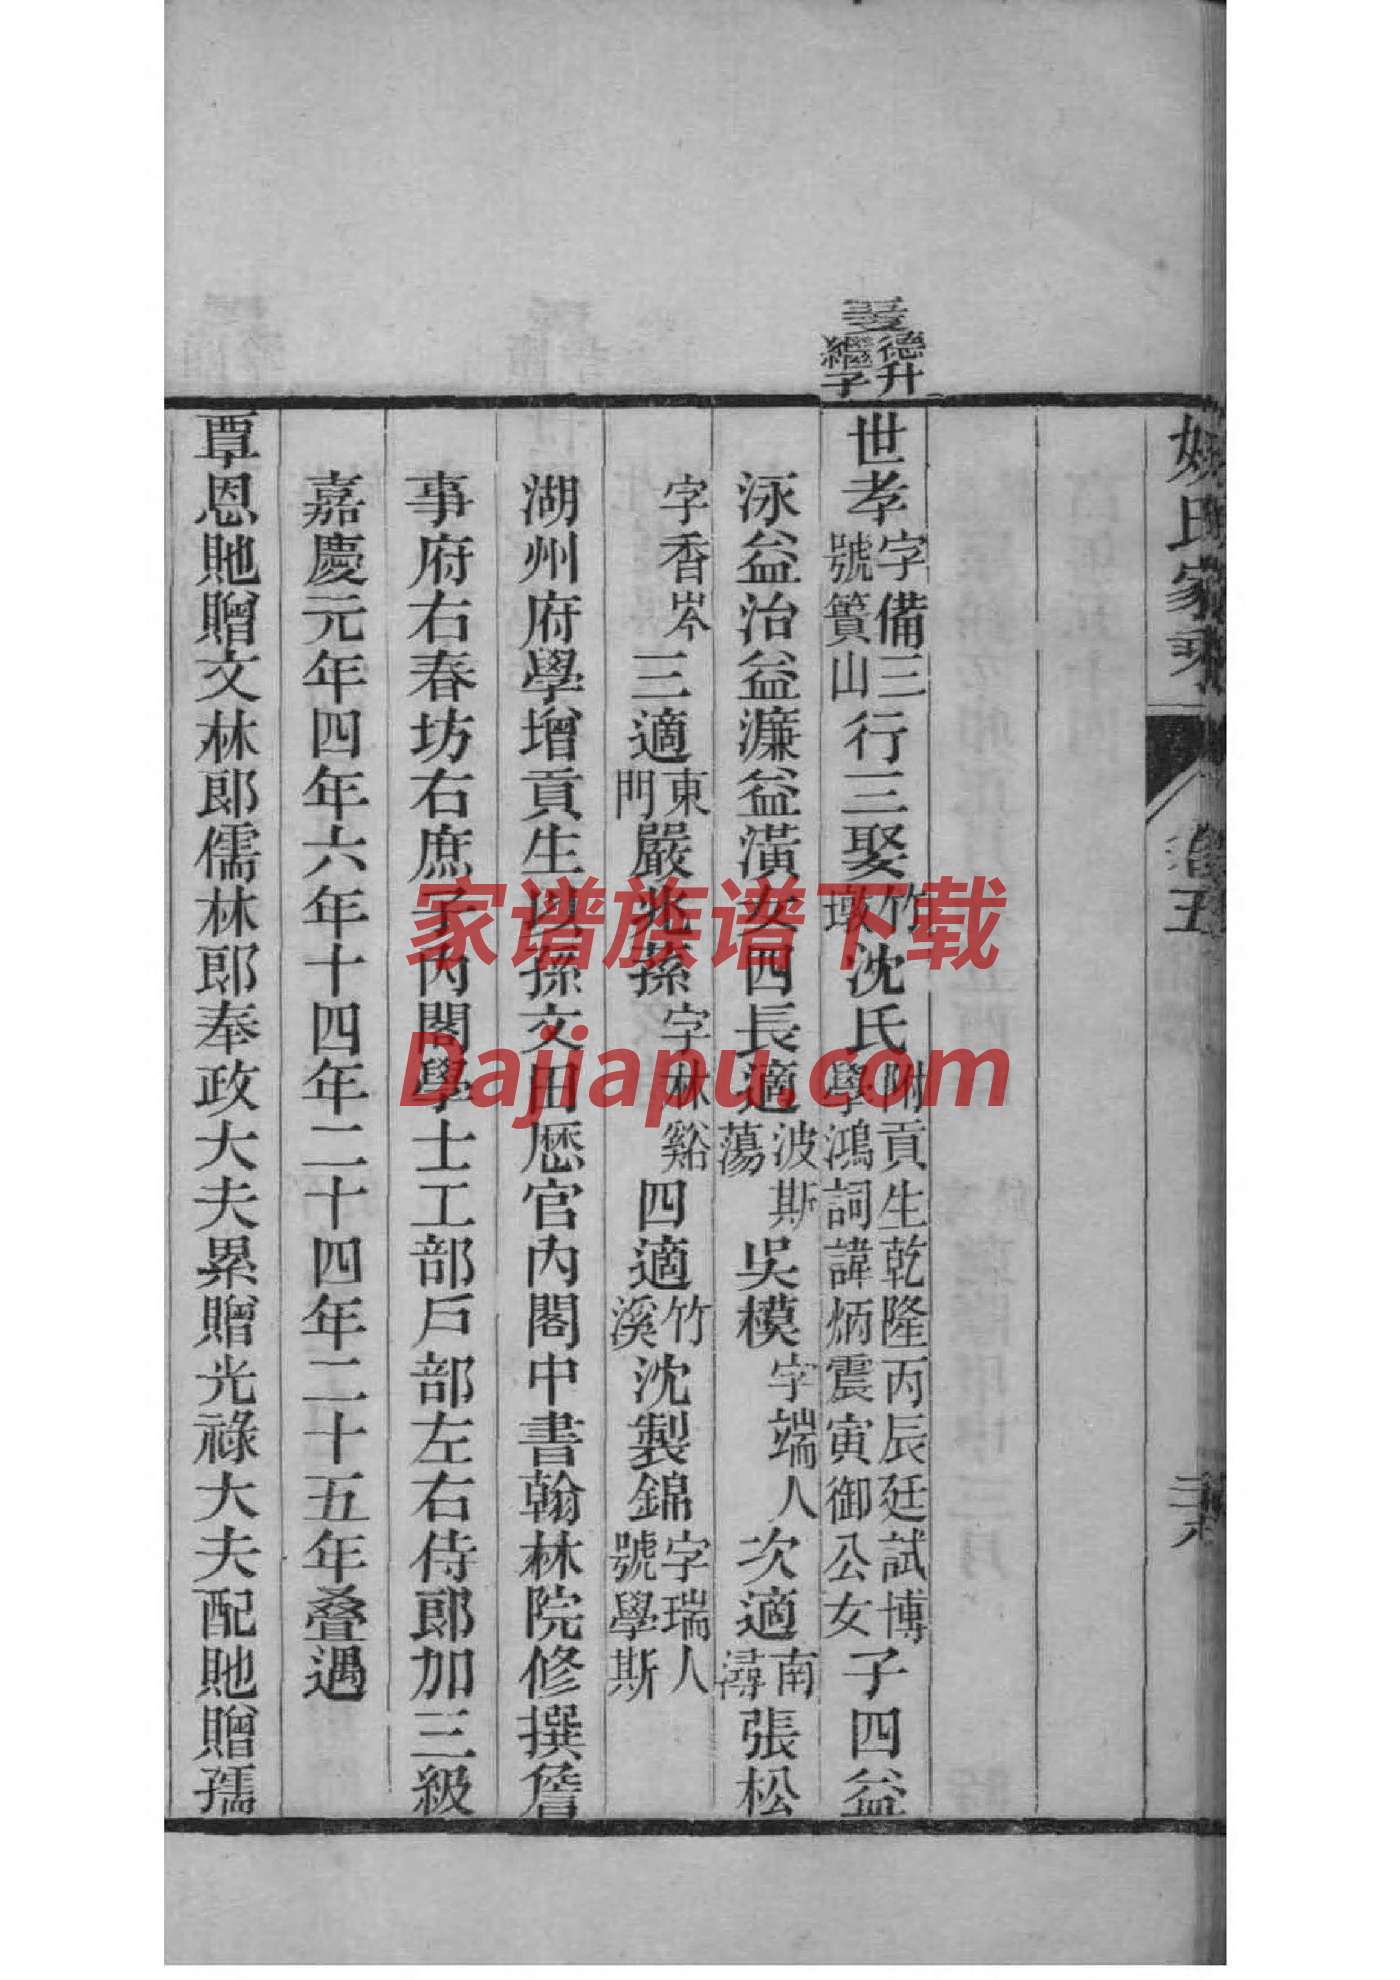 姚氏家乘
卷五
三六
爻 德升繼子
世孝 字備三號簣山 行三娶 竹墩 沈氏 附貢生乾隆丙辰廷試博學鴻詞諱炳震寅御公女 子四益
泳益治益濂益潢女四長適 波斯蕩 吳模 字端人 次適 南潯 張松
字香岑 三適 東門 嚴兆蓀 字林谿 四適 竹溪 沈製錦 字瑞人號學斯
湖州府學增貢生以孫文田歷官內閣中書翰林院修撰詹
事府右春坊右庶子內閣學士工部戶部左右侍郎加三級
嘉慶元年四年六年十四年二十四年二十五年叠遇
覃恩貤贈文林郎儒林郎奉政大夫累贈光祿大夫配貤贈孺
家谱族谱下载
Dajiapu.com